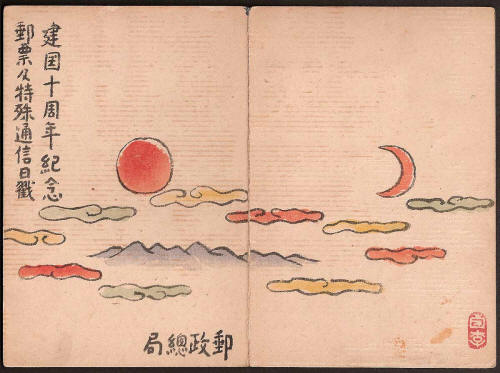 建国十周年紀念
郵票及特殊通信日戳
郵政總局